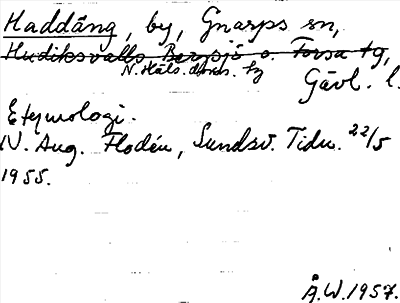 Haddäng, by, Gnarps sn,
Hudiksvalls Bergsjö o. Forsa tg,
N. Häls. doms. tg
Gävl. l.
Etymologi.
N. Aug. Flodén, Sundsv. Tidn. 22/5
1955.
Å.W. 1957.